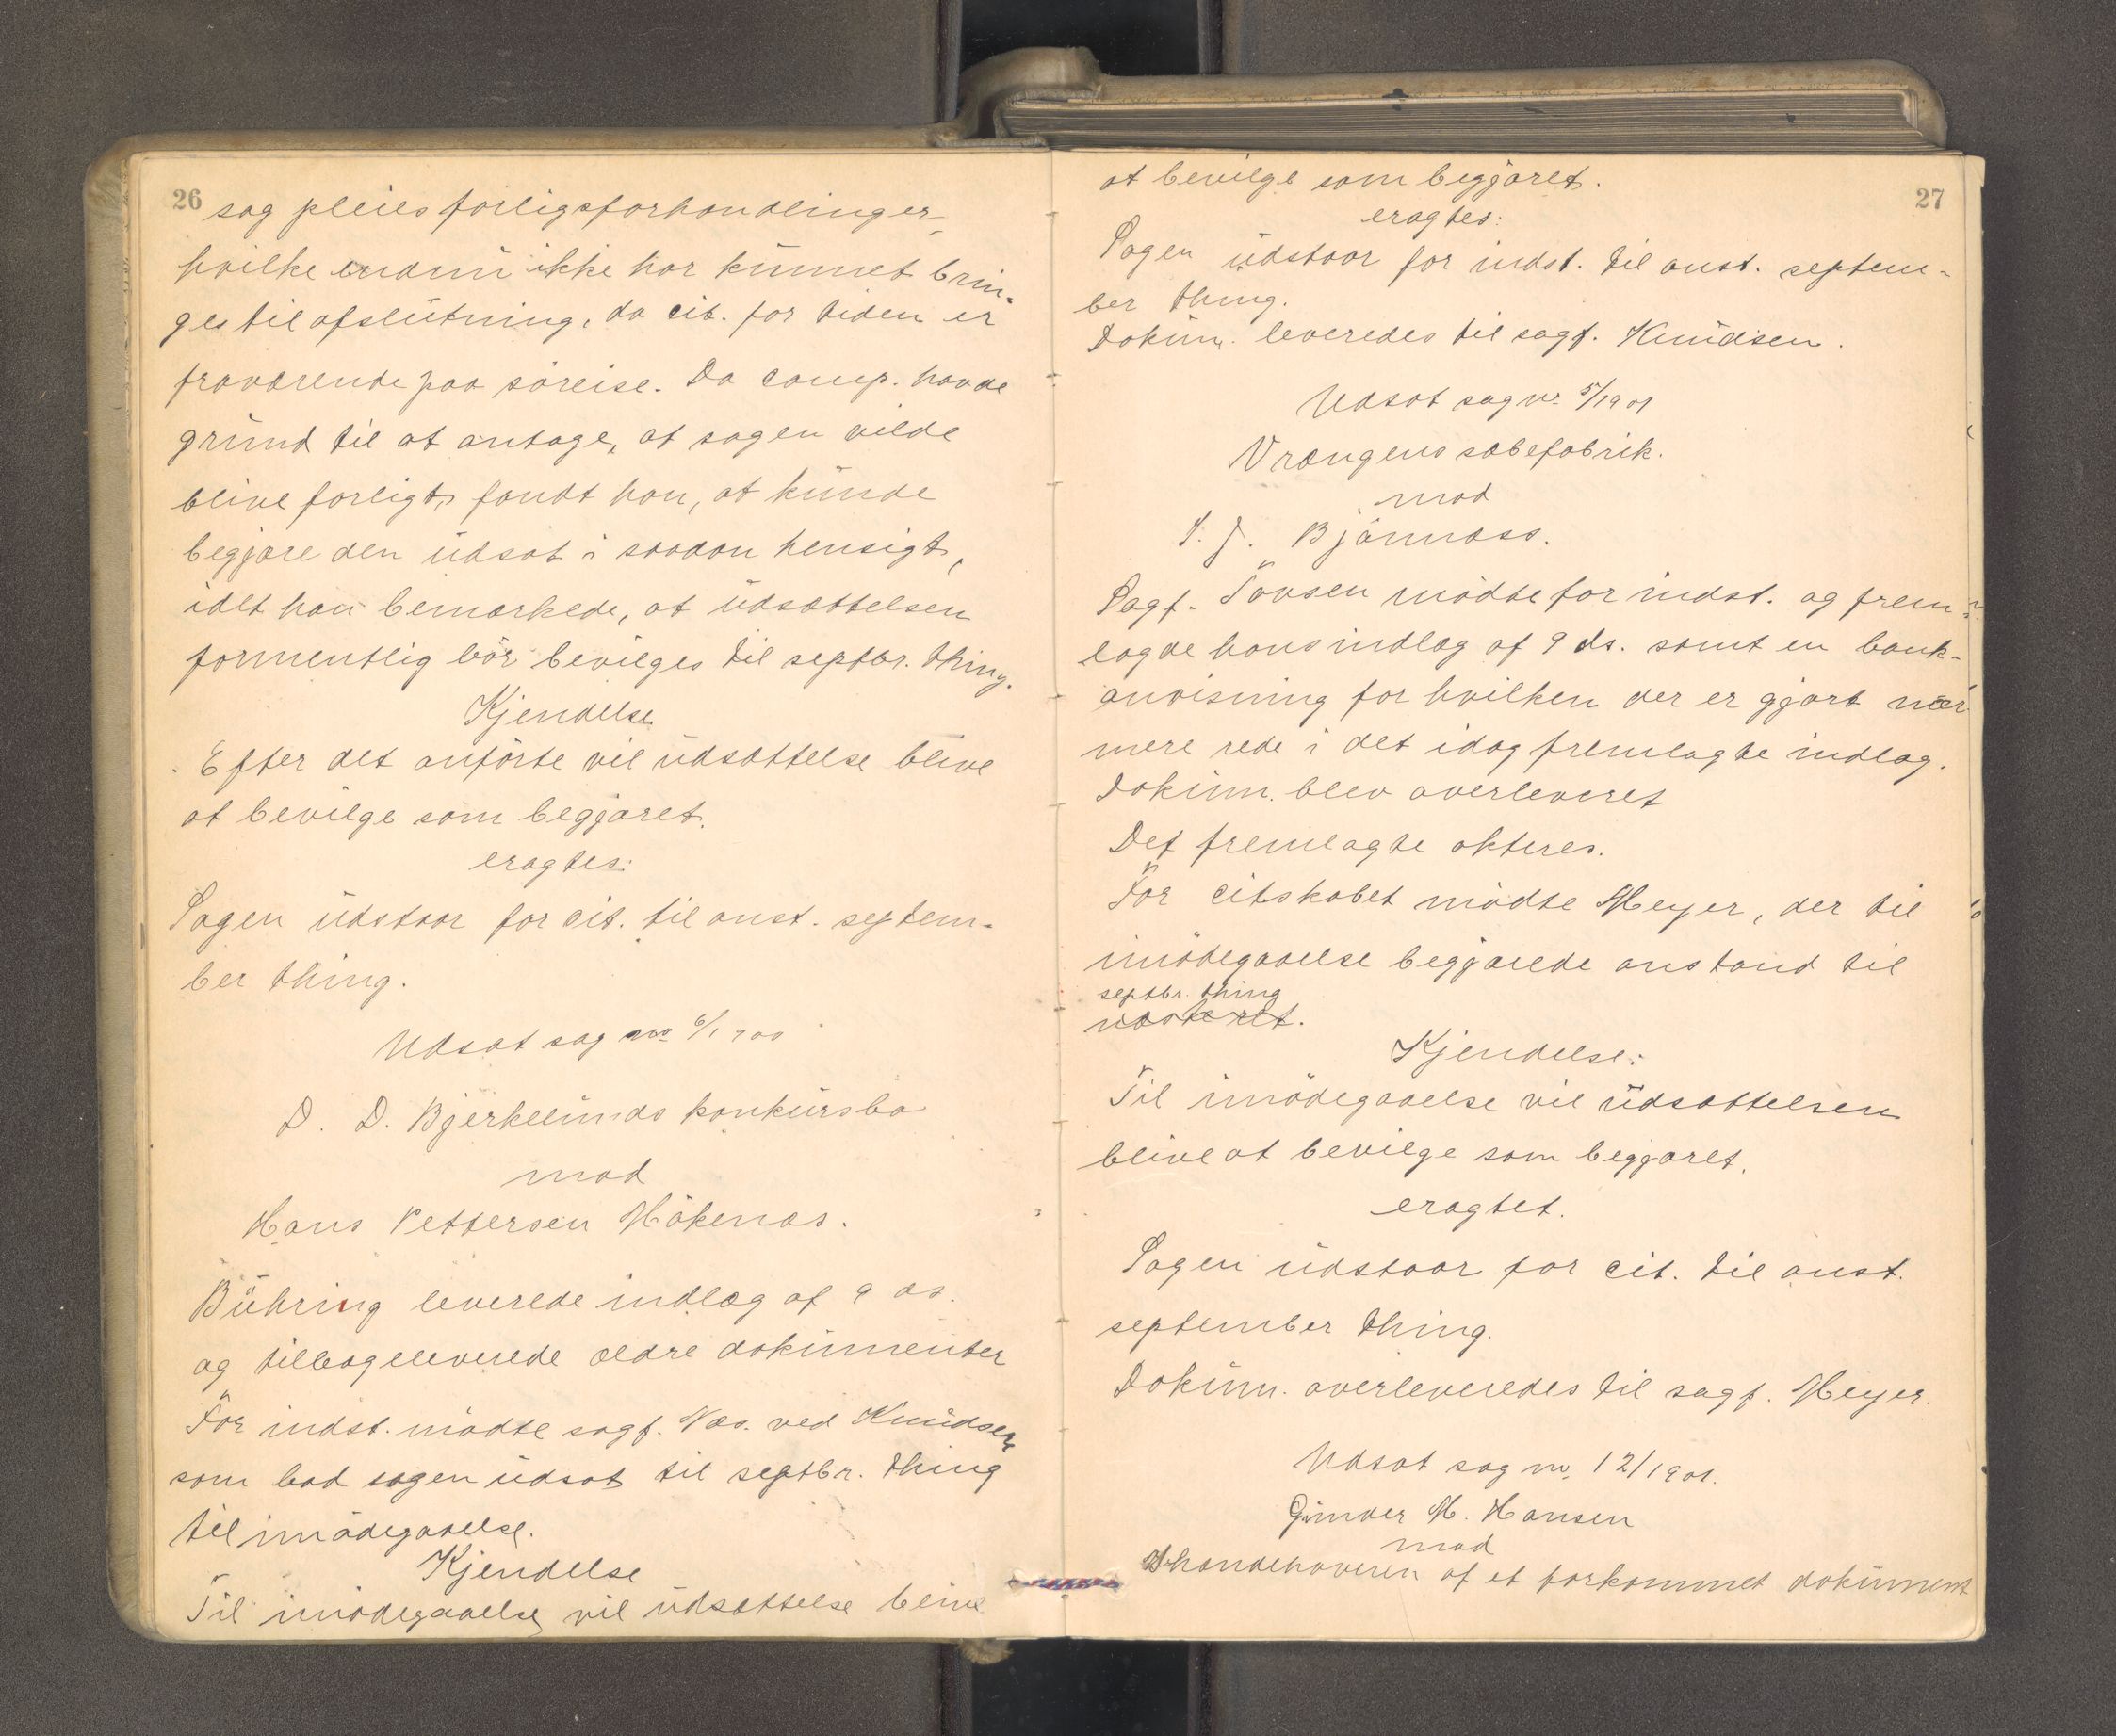 26
sag pleies forligsforhandlinger,
hvilke endnu ikke har kunnet brin-
ges til afslutning, da cit. for tiden er
fraværende paa søreise. Da comp. havde
grund til at antage, at sagen vilde
blive forligt, fandt han, at kunde
begjære den udsat i saadan hensigt,
idet han bemærkede, at udsættelsen
formentlig bör bevilges til septbr. thing.
Kjendelse
Efter det anförte vil udsættelse blive
at bevilge som begjæret.
eragtes:
Sagen udstaar for cit. til anst. septem-
ber thing.
Udsat sag no 6/1900
D. D. Bjerkelunds konkursbo
mod
Hans Pettersen Hökenæs.
Bühring leverede indlæg af 9 ds.
og tilbageleverede ældre dokumenter
For indst. mödte sagf. Næs. ved Knudsen
som bad sagen udsat til septbr. thing
til imödegaaelse.
Kjendelse
Til imödegaaelse vil udsættelse blive
27
at bevilge som begjæret.
eragtes:
Sagen udstaar for indst. til anst. septem-
ber thing.
Dokum. leveredes til sagf. Knudsen.
Udsat sag nr 5/1901
Vrængens sæbefabrik.
mod
J. J. Bjönnæss.
Sagf. Tönsen mödte for indst. og frem-
lagde hans indlæg af 9 ds. samt en bank-
anvisning for hvilken der er gjort nær-
mere rede i det idag fremlagte indlæg.
Dokum. blev overleveret
Det fremlagte akteres.
For citskabet mödte Meyer, der til
imödegaaelse begjærede anstand til
septbr. thing
Kjendelse:
Til imödegaaelse vil udsættelsen
blive at bevilge som begjæret.
eragtet.
Sagen udstaar for cit. til anst.
september thing.
Dokum. overleveredes til sagf. Meyer.
Udsat sag nr. 12/1901.
Gunder M. Hansen
mod
Ihændehaveren af et forkommet dokument